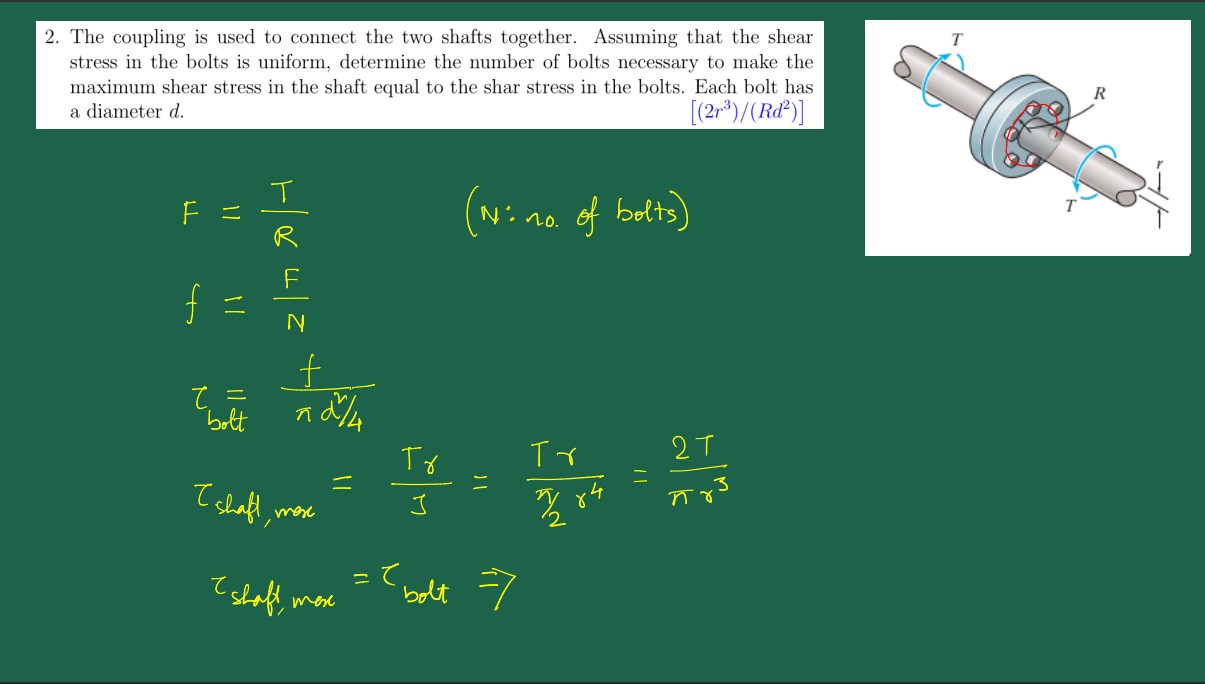 2. The coupling is used to connect the two shafts together. Assuming that the shear
stress in the bolts is uniform, determine the number of bolts necessary to make the
maximum shear stress in the shaft equal to the shar stress in the bolts. Each bolt has
a diameter d. [(2r³)/(Rd²)]
T
R
r
T
F = T/R (N: no. of bolts)
f = F/N
τ_bolt = f/(π d²/4)
τ_shaft, max = Tr/J = Tr/(π/2 r⁴) = 2T/(π r³)
τ_shaft, max = τ_bolt ⇒